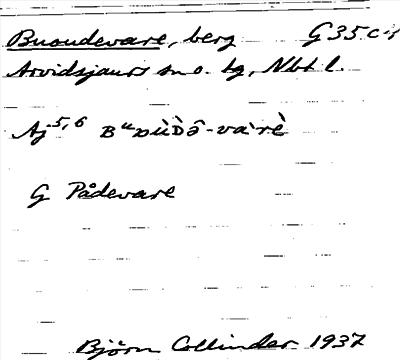 Buoudevare, berg G 35 c-d
Arvidsjaurs sn o. tg, Nbt l.
Aj 5,6
G Pådevare
Björn Collinder 1937